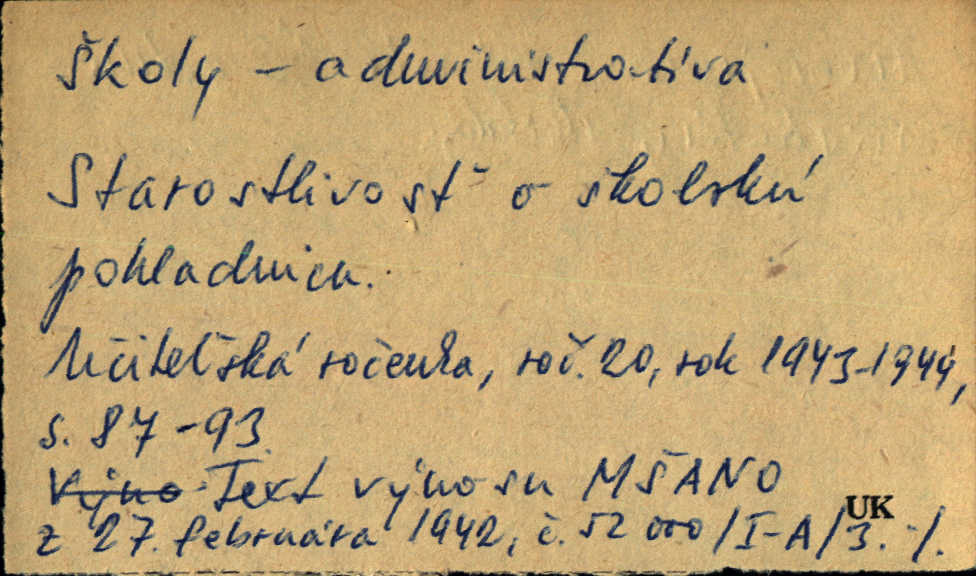 Školy - administratíva
Starostlivosť o školskú
pokladnicu.
Učiteľská ročenka, roč. 20, rok 1943-1944,
s. 87-93
Výno Text výnosu MŠANO
z 27. februára 1942, č. 52 000/I-A/3. -/.
UK